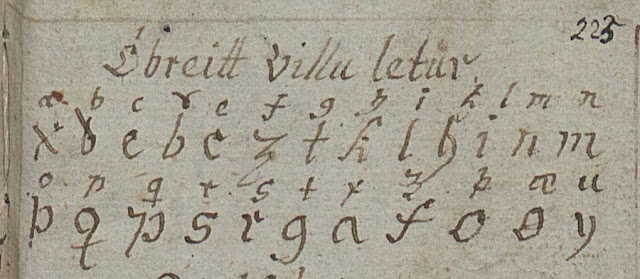 225
Óbreitt villu letur
a b c d e f g h i k l m n
x d e b c z t k l h i n m
o p q r s t x z þ æ u
þ q p s r g a f o ø y